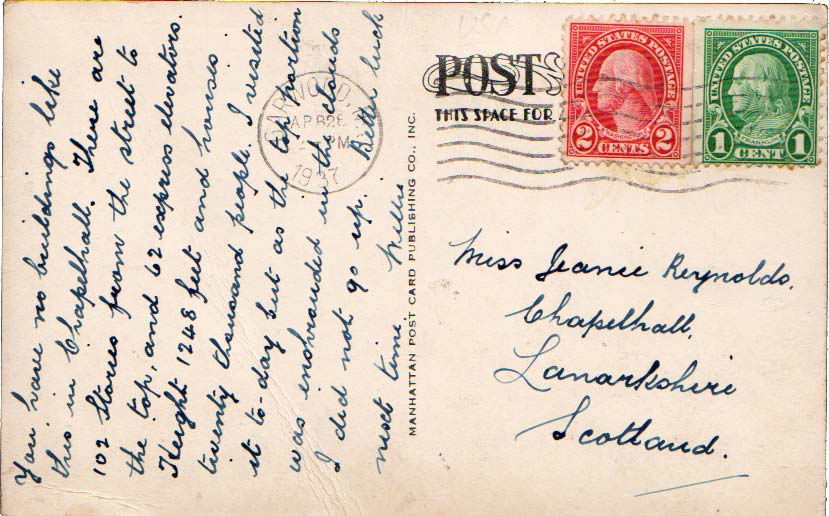 You have no buildings like
this in Chapelhall. There are
102 Stories from the street to
the top, and 62 express elevators.
Height 1248 feet and houses
twenty thousand people. I visited
it to-day but as the top portion
was enshrouded in the clouds
I did not go up. Better luck
next time. Willie
MANHATTAN POST CARD PUBLISHING CO., INC.
POST
THIS SPACE FOR
APR 28
PM
1937
UNITED STATES POSTAGE
WASHINGTON
2 CENTS 2
UNITED STATES POSTAGE
FRANKLIN
1 CENT 1
USA
Miss Jeanie Reynolds.
Chapelhall,
Lanarkshire
Scotland.